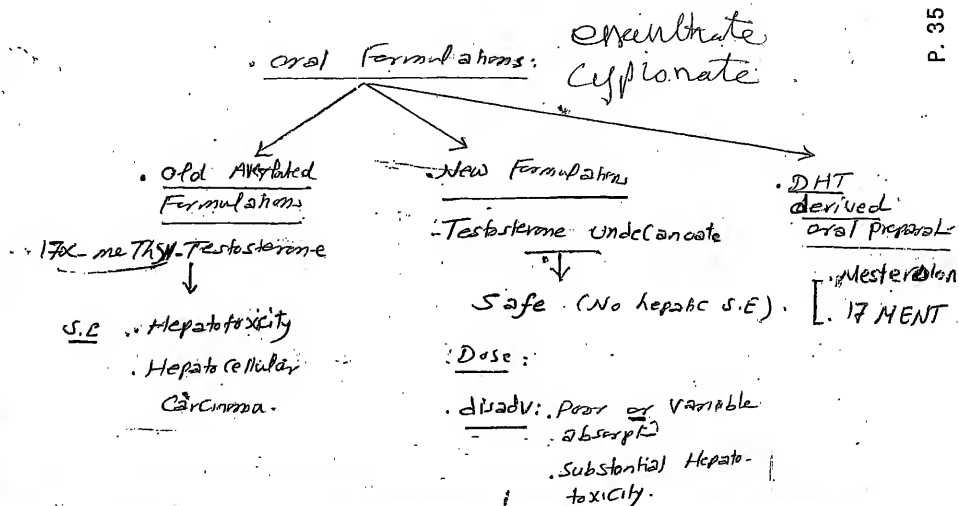 P. 35
enanthate
cypionate
. oral Formulations:
. old Alkylated
Formulations
. 17α-methyl-Testosterone
S.E . Hepatotoxicity
. Hepatocellular
Carcinoma.
. New Formulations
- Testosterone undecanoate
Safe (No hepatic S.E).
. Dose :
. disadv: . Poor or variable
absorpt
. Substantial Hepato-
toxicity.
. DHT
derived
oral Preparat
. Mesterolon
. 17 MENT